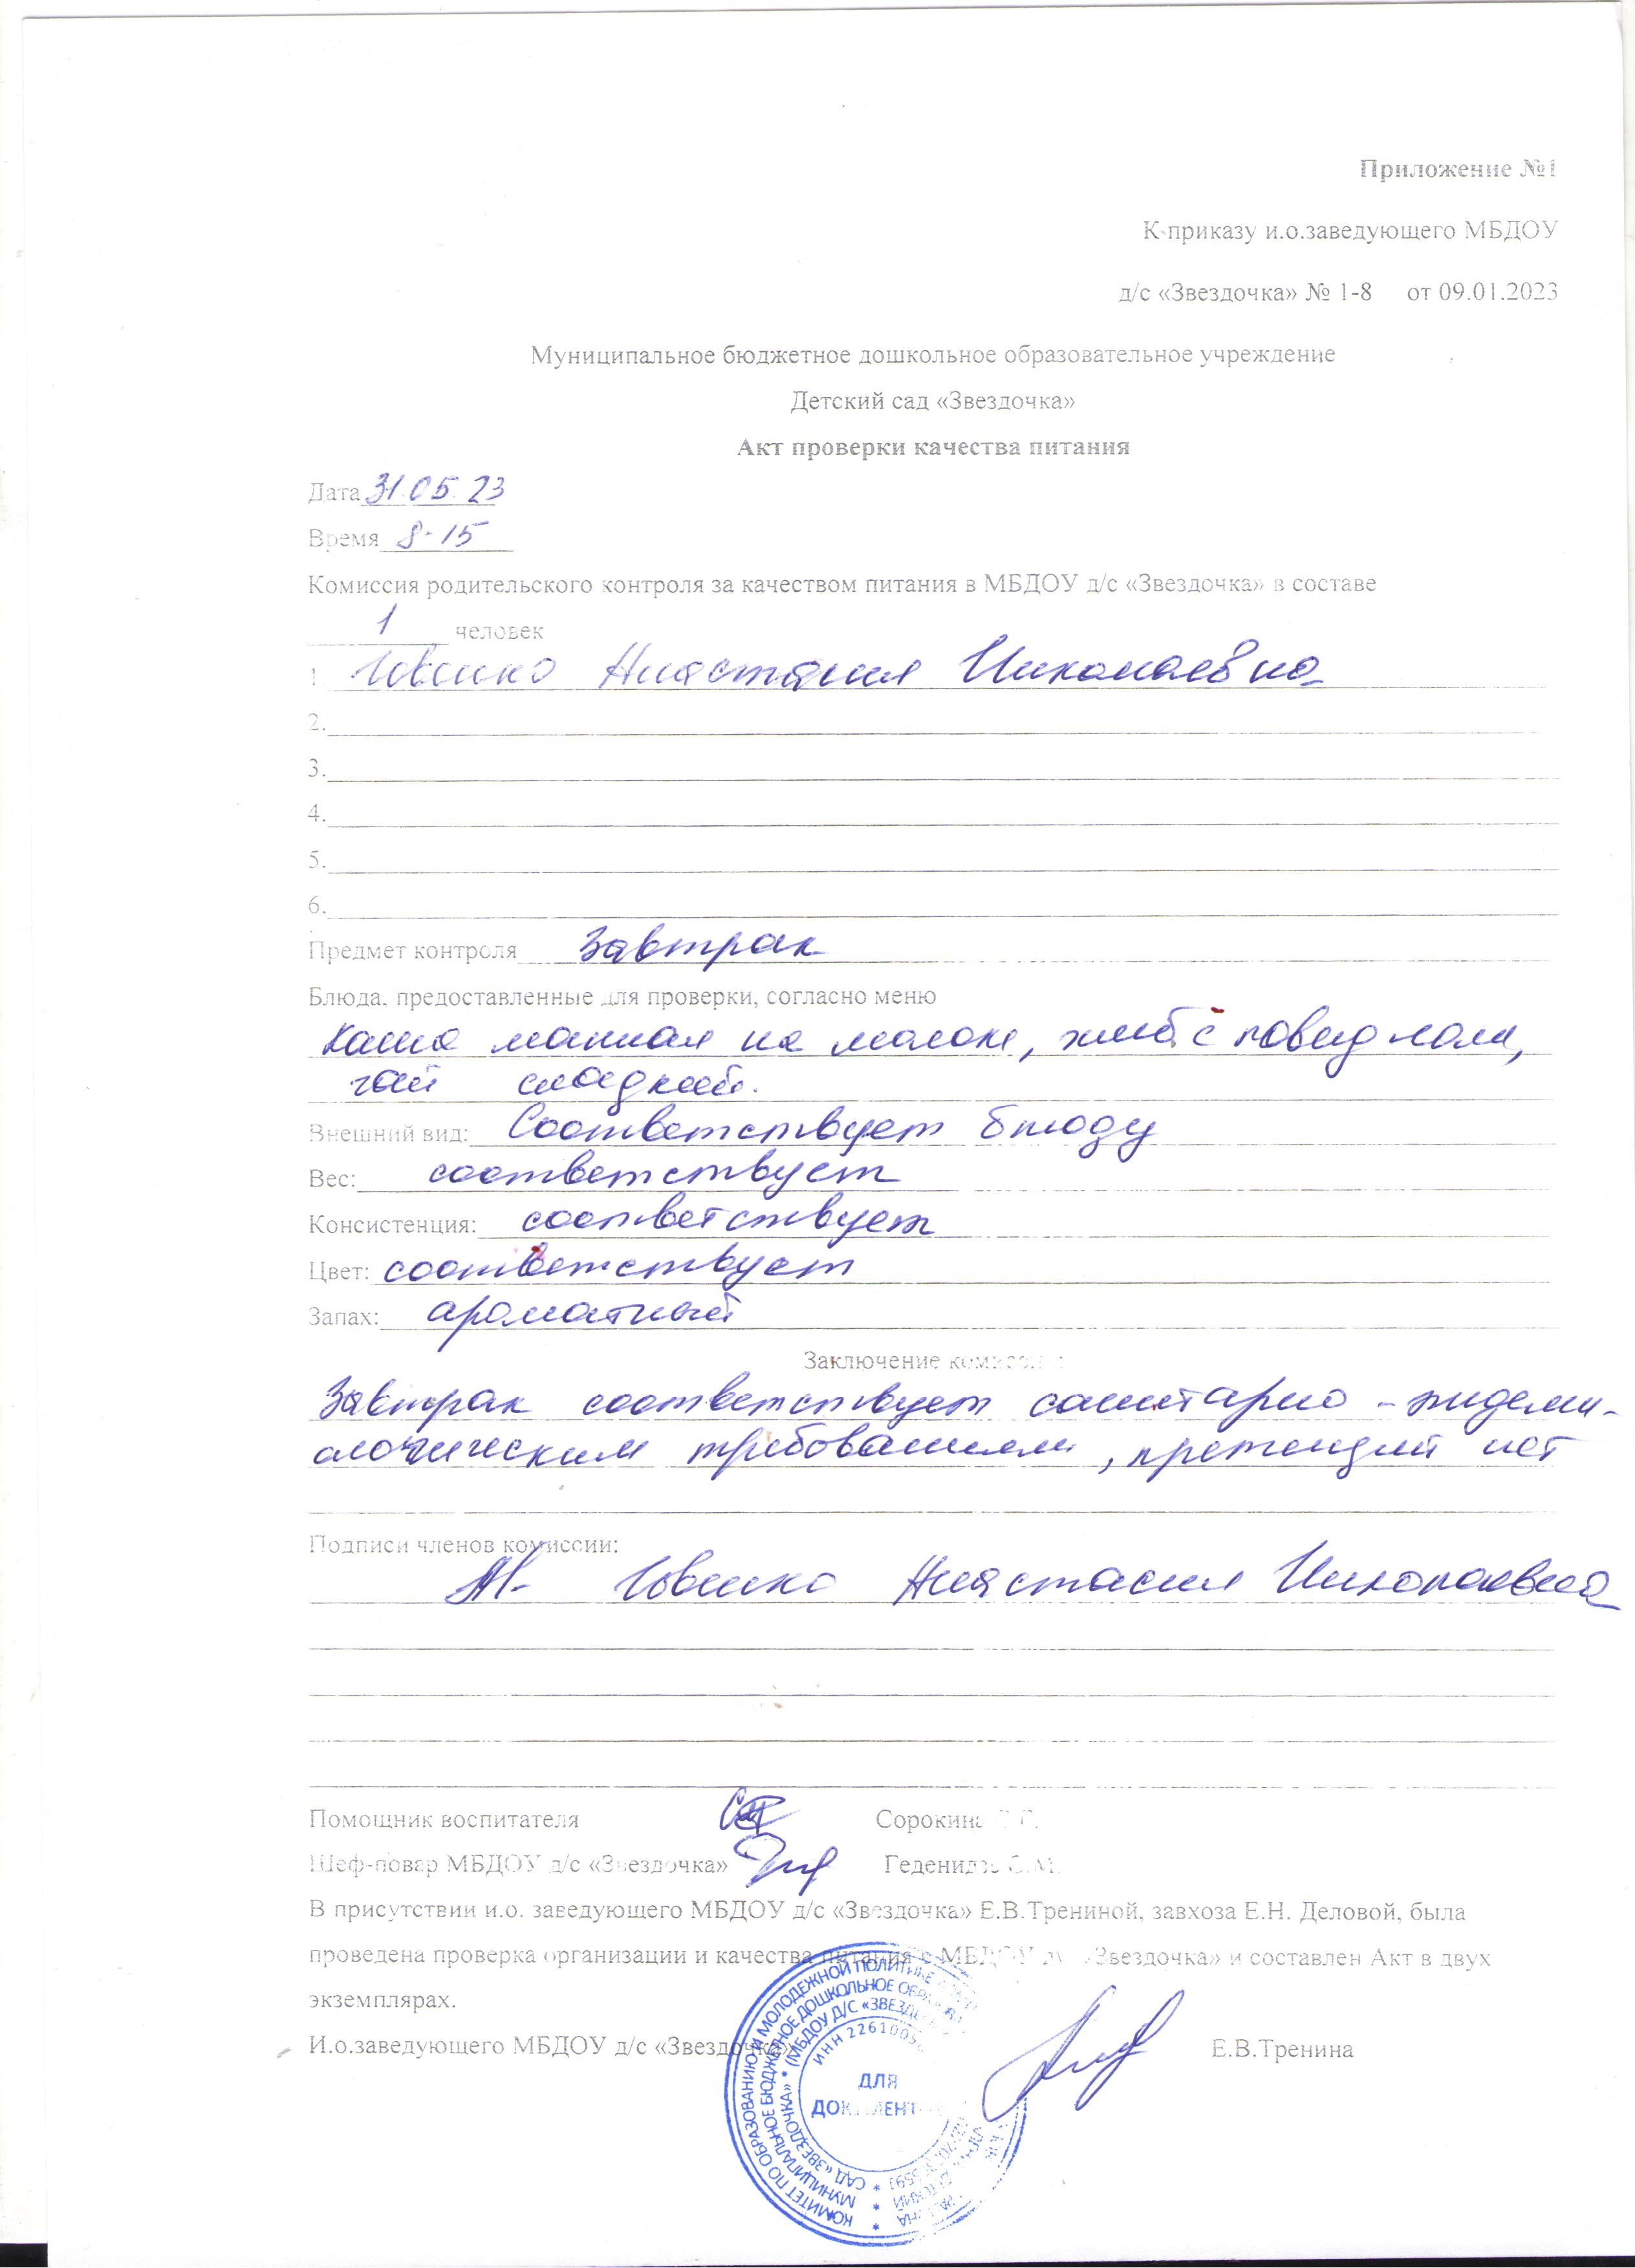 Приложение №1
К приказу и.о.заведующего МБДОУ
д/с «Звездочка» № 1-8 от 09.01.2023
Муниципальное бюджетное дошкольное образовательное учреждение
Детский сад «Звездочка»
Акт проверки качества питания
Дата 31.05.23
Время 8-15
Комиссия родительского контроля за качеством питания в МБДОУ д/с «Звездочка» в составе
1 человек
1. Анастасия Николаевна
2.
3.
4.
5.
6.
Предмет контроля Завтрак
Блюда, предоставленные для проверки, согласно меню
Каша манная на молоке, хлеб с повидлом,
чай сладкий.
Внешний вид: Соответствует блюду
Вес: соответствует
Консистенция: соответствует
Цвет: соответствует
Запах: ароматный
Заключение комиссии:
Завтрак соответствует санитарно-эпидеми-
ологическим требованиям, претензий нет
Подписи членов комиссии:
Анастасия Николаевна
Помощник воспитателя Сорокина
Шеф-повар МБДОУ д/с «Звездочка» С.М.
В присутствии и.о. заведующего МБДОУ д/с «Звездочка» Е.В.Трениной, завхоза Е.Н. Деловой, была
проведена проверка организации и качества питания в МБДОУ д/с «Звездочка» и составлен Акт в двух
экземплярах.
И.о.заведующего МБДОУ д/с «Звездочка» Е.В.Тренина
КОМИТЕТ ПО ОБРАЗОВАНИЮ И МОЛОДЕЖНОЙ ПОЛИТИКЕ
МУНИЦИПАЛЬНОЕ БЮДЖЕТНОЕ ДОШКОЛЬНОЕ
САД «ЗВЕЗДОЧКА» * (МБДОУ Д/С
ИНН
ДЛЯ
ДОКУМЕНТОВ